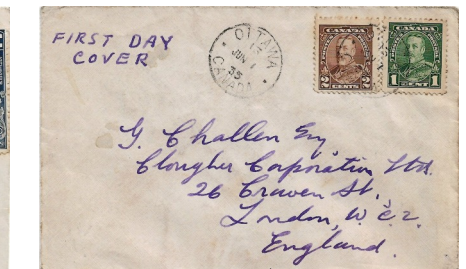 FIRST DAY
COVER
OTTAWA
JUN 1
35
CANADA
CANADA
2 CENTS 2
CANADA
1 CENT 1
G. Challen Esq.
Clougher Corporation Ltd.
26 Craven St.,
London, W.C.2.
England.